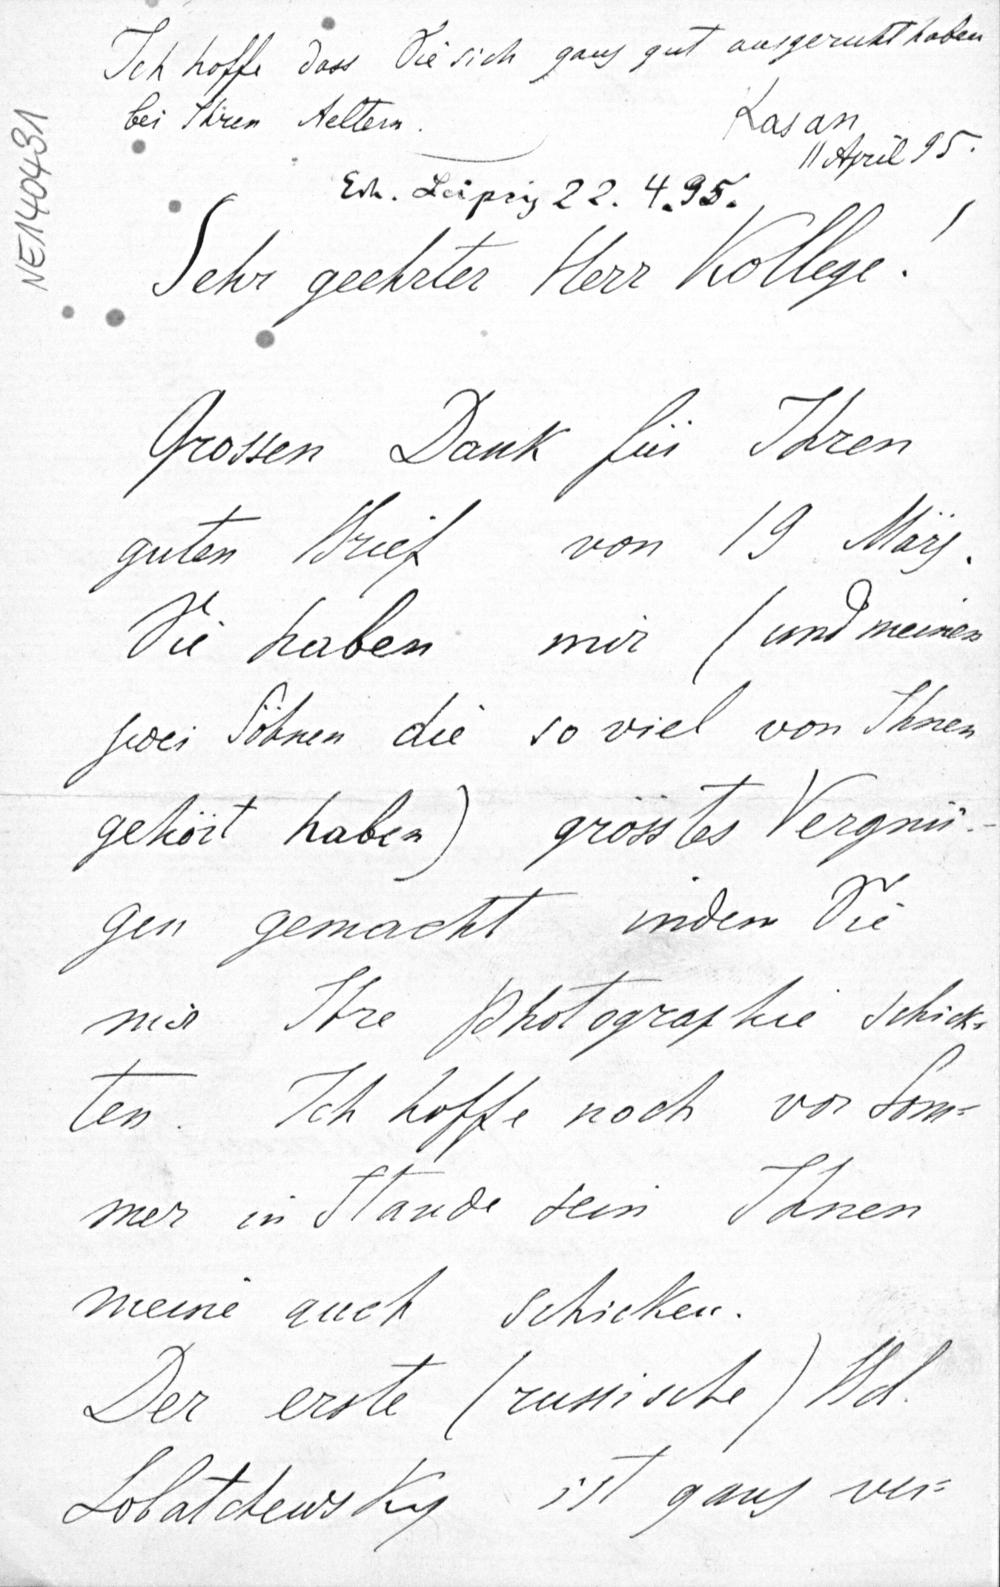 Ich hoffe dass Sie sich ganz gut ausgeruht haben
bei Ihren Aeltern.
Kasan
11 April 95.
NE140431
Erh. Leipzig 22.4.95.
Sehr geehrter Herr Kollege!
Grossen Dank für Ihren
guten Brief von 19 März.
Sie haben mir (und meinen
zwei Söhnen die so viel von Ihnen
gehört haben) grösstes Vergnü-
gen gemacht indem Sie
mir Ihre Photographie schick-
ten. Ich hoffe noch vor Som=
mer in Stande sein Ihnen
meine auch schicken.
Der erste (russische) Bd.
Lobatchewsky ist ganz ver=